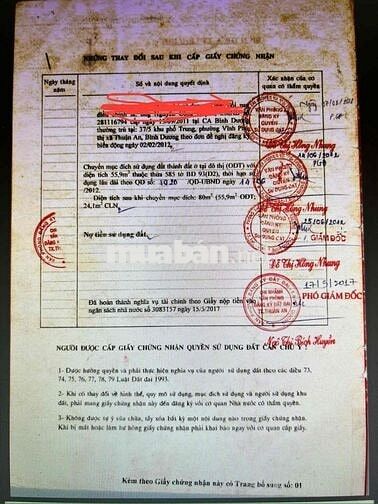 NHỮNG THAY ĐỔI SAU KHI CẤP GIẤY CHỨNG NHẬN
Ngày tháng năm
Số và nội dung quyết định
Xác nhận của cơ quan có thẩm quyền
281116794 cấp tại CA Bình Dương
thường trú tại: 37/5 khu phố Trung, phường Vĩnh Phú,
thị xã Thuận An, Bình Dương theo đơn đề nghị đăng ký
biến động ngày 02/02/2012.
Lê Thị Hồng Nhung
Chuyển mục đích sử dụng đất thành đất ở tại đô thị (ODT) với
diện tích 55,9m² thuộc thửa 585 tờ BĐ 93(D2), thời hạn sử
dụng lâu dài theo QĐ số /QĐ-UBND ngày
Diện tích sau khi chuyển mục đích: 80m² (55,9m² ODT,
24,1m² CLN
Nợ tiền sử dụng đất.
GIÁM ĐỐC
Lê Thị Hồng Nhung
17/5/2017
PHÓ GIÁM ĐỐC
Đã hoàn thành nghĩa vụ tài chính theo Giấy nộp tiền vào
ngân sách nhà nước số 3083157 ngày 15/5/2017
CHI NHÁNH
VĂN PHÒNG
ĐĂNG KÝ ĐẤT ĐAI
TX.THUẬN AN
Ngô Thị Bích Huyền
muaban
NGƯỜI ĐƯỢC CẤP GIẤY CHỨNG NHẬN QUYỀN SỬ DỤNG ĐẤT CẦN CHÚ Ý:
1- Được hưởng quyền và phải thực hiện nghĩa vụ của người sử dụng đất theo các điều 73,
74, 75, 76, 77, 78, 79 Luật Đất đai 1993.
2- Khi có thay đổi về hình thể, quy mô sử dụng, mục đích sử dụng và người sử dụng khu
đất, phải mang giấy chứng nhận này đến đăng ký với cơ quan Nhà nước có thẩm quyền.
3- Không được tự ý sửa chữa, tẩy xóa bất kỳ một nội dung nào trong giấy chứng nhận.
Khi bị mất hoặc làm hư hỏng giấy chứng nhận phải khai báo ngay với cơ quan cấp giấy.
Kèm theo Giấy chứng nhận này có Trang bổ sung số: 01